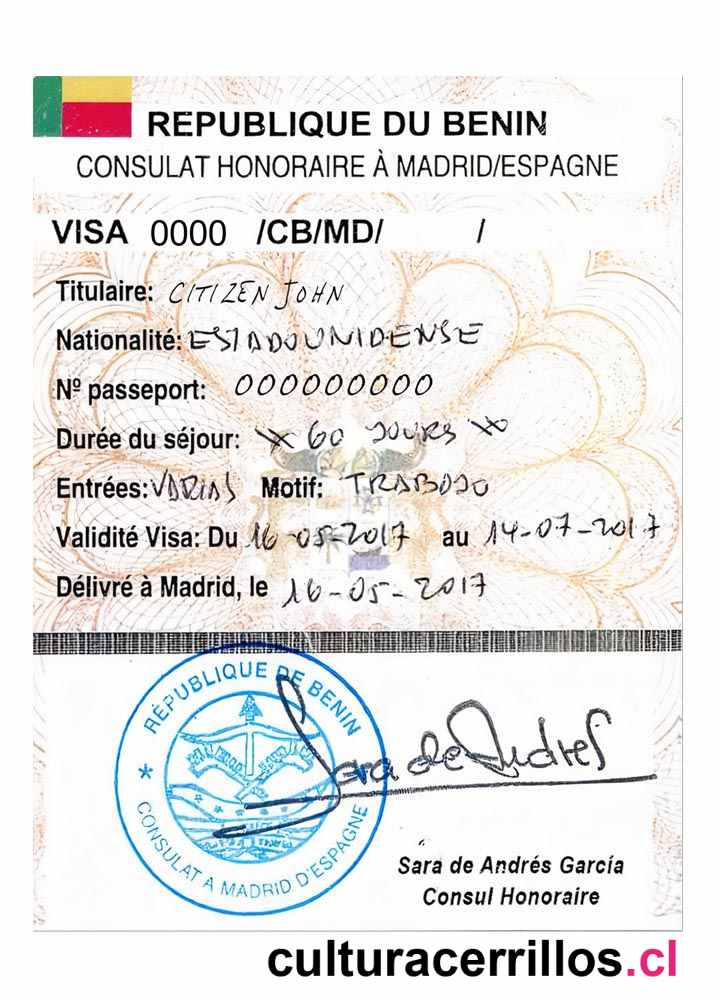 REPUBLIQUE DU BENIN
CONSULAT HONORAIRE À MADRID/ESPAGNE
VISA 0000 /CB/MD/ /
Titulaire: CITIZEN JOHN
Nationalité: ESTADOUNIDENSE
Nº passeport: 000000000
Durée du séjour: 60 JOURS
Entrées: VARIAS Motif: TRABAJO
Validité Visa: Du 16-05-2017 au 14-07-2017
Délivré à Madrid, le 16-05-2017
RÉPUBLIQUE DE BENIN
* CONSULAT A MADRID D'ESPAGNE *
Sara de Andrés
Sara de Andrés García
Consul Honoraire
culturacerrillos.cl